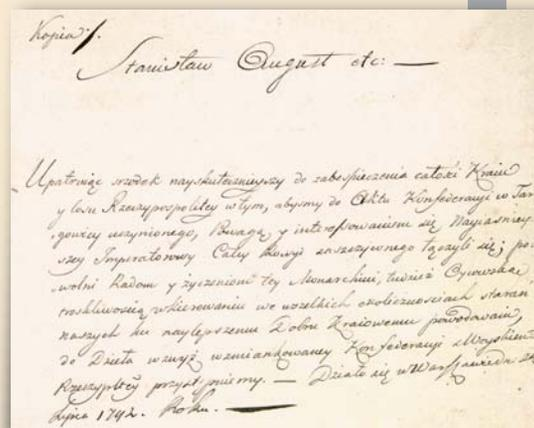 Kopia
Stanisław August etc: —
Upatruiąc srzodek nayskutecznieyszy do zabespieczenia całości Kraiu
y losu Rzeczypospolitey w tym, abyśmy do Aktu Konfederacyi w Tar
gowicy uczynionego, Powagą y interessowaniem się Nayiaśniey
szey Imperatorowy Całey Rossyi zaszczyconego łączyli się; po
wolni Radom y życzeniom tey Monarchini, tudzież Oycowską
troskliwością w kierowaniu we wszelkich okolicznościach starań
naszych ku naylepszemu Dobru Kraiowemu powodowani,
do Dzieła wzwyż wzmiankowaney Konfederacyi z Woyskiem
Rzeczyplтey przystępuiemy. — Działo się w Warszawie dn 24
Lipca 1792. Roku. —